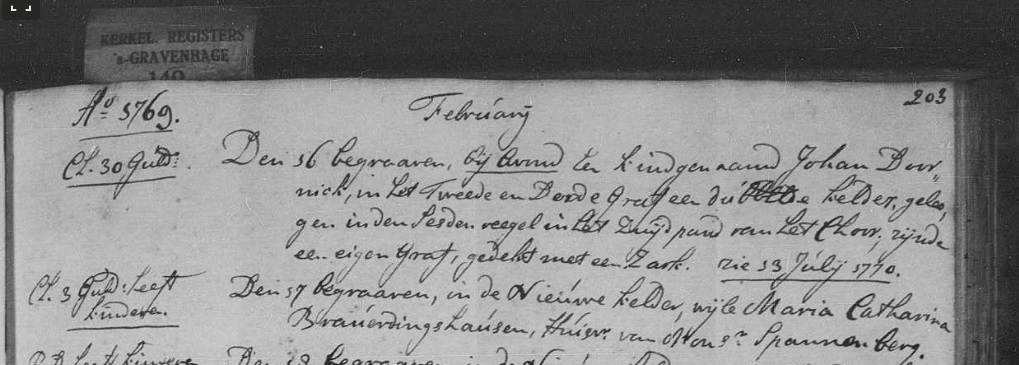 KERKEL. REGISTERS
's-GRAVENHAGE
149
203
Aº 1769.
February
Cl. 30 Guld:
Den 16 begraaven, bij avond Een kindgenaamd Johan Door„
nick, in het Tweede en Derde Graf een kelder, gelee„
gen in den Sesden reegel in het Zuijd pand van het Choor, zijnde
een eigen Graf, gedekt met een Zark. zie 13 Julij 1770.
Cl. 3 Guld: Leeft
kinderen.
Den 17 begraaven, in de Nieuwe kelder, wijle Maria Catharina
Brauerdingshausen, Huisvr. van Monsr. Spannenberg.